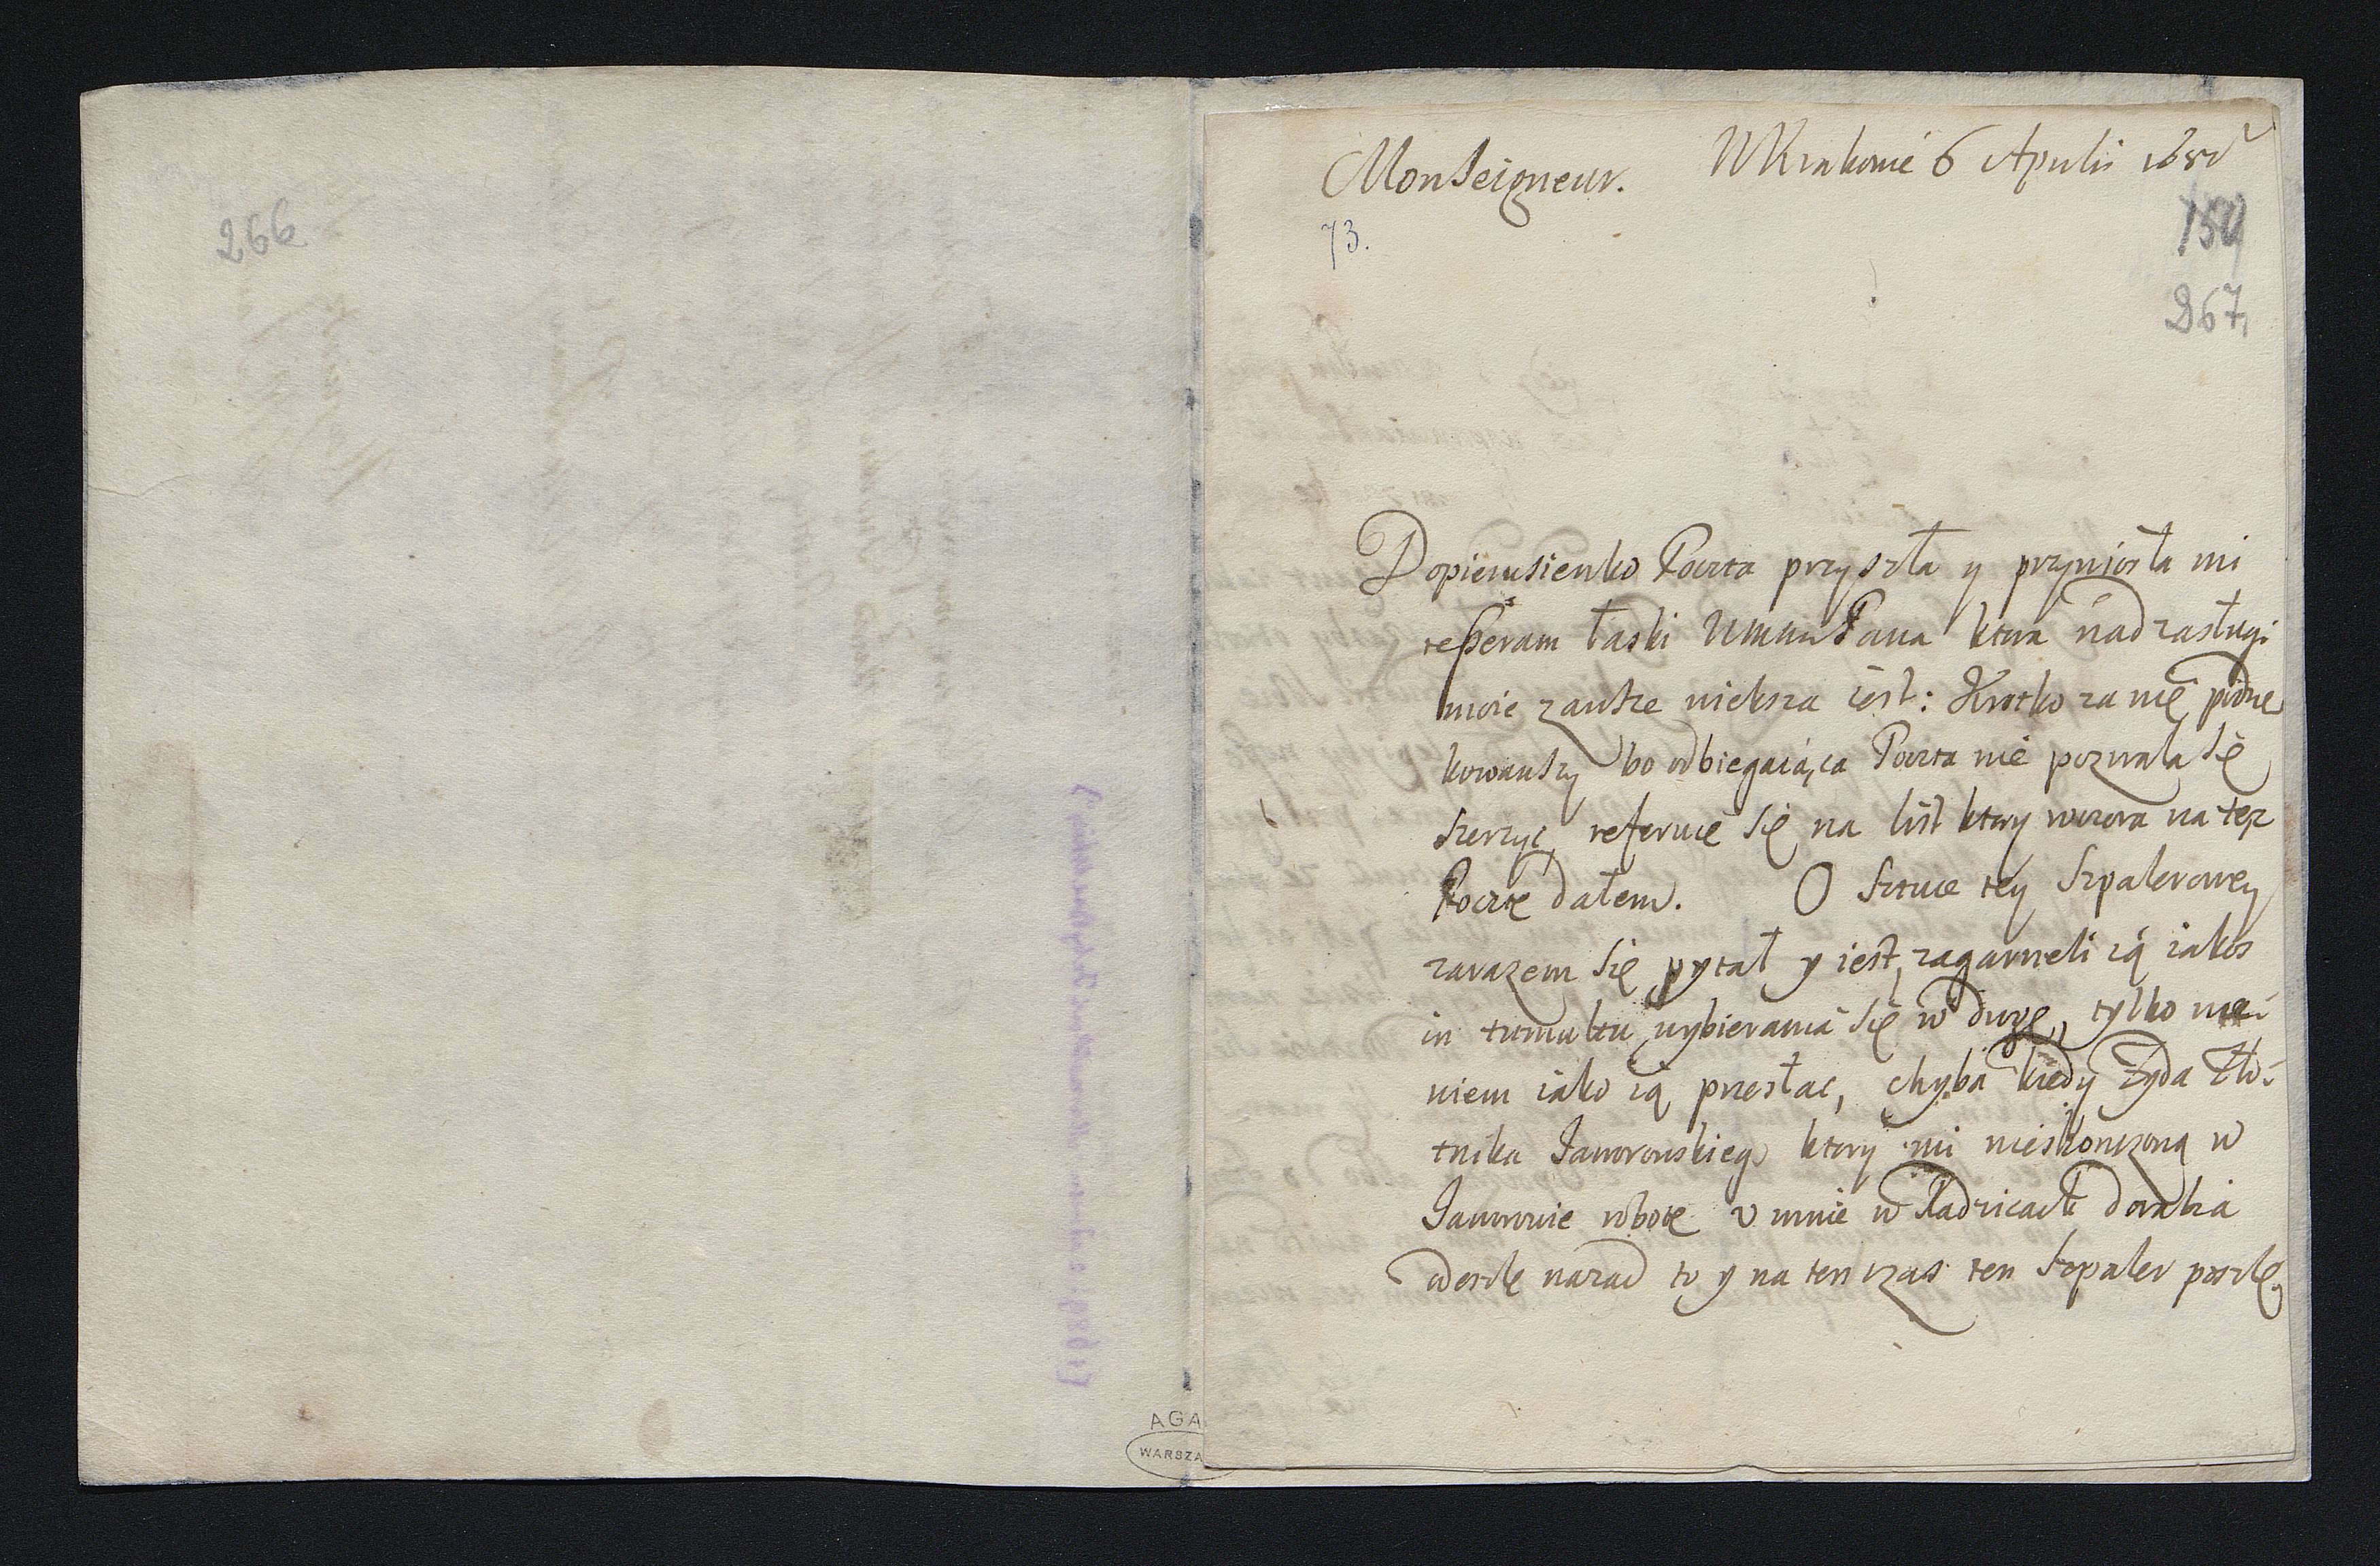 266
Monseigneur. W Krakowie 6 Aprilis
73.
154
267
Dopierusienko Poczta przyszła y przyniosła mi
tesseram łaski WMM Pana ktora nad zasługi
moie zawsze wieksza iest: Krotko za nię podzię
kowawszy bo odbiegaiąca Poczta nie pozwala się
szerzyc, referuię się na list ktory wczora na tęz
Pocztę dałem. O sztuce tey Szpalerowey
zarazem się pytał y iest, zagarneli ią iakos
in tumultu wybierania się w drogę, tylko nie
wiem iako ią przesłac, chyba kiedy Zyda Zło-
tnika Jaworowskiego ktory mi nieskonczoną w
Jaworowie robotę v mnie w Radzicach dorabia
odeszlę nazad to y na ten czas ten Szpaler poszlę,
AGA
WARSZA